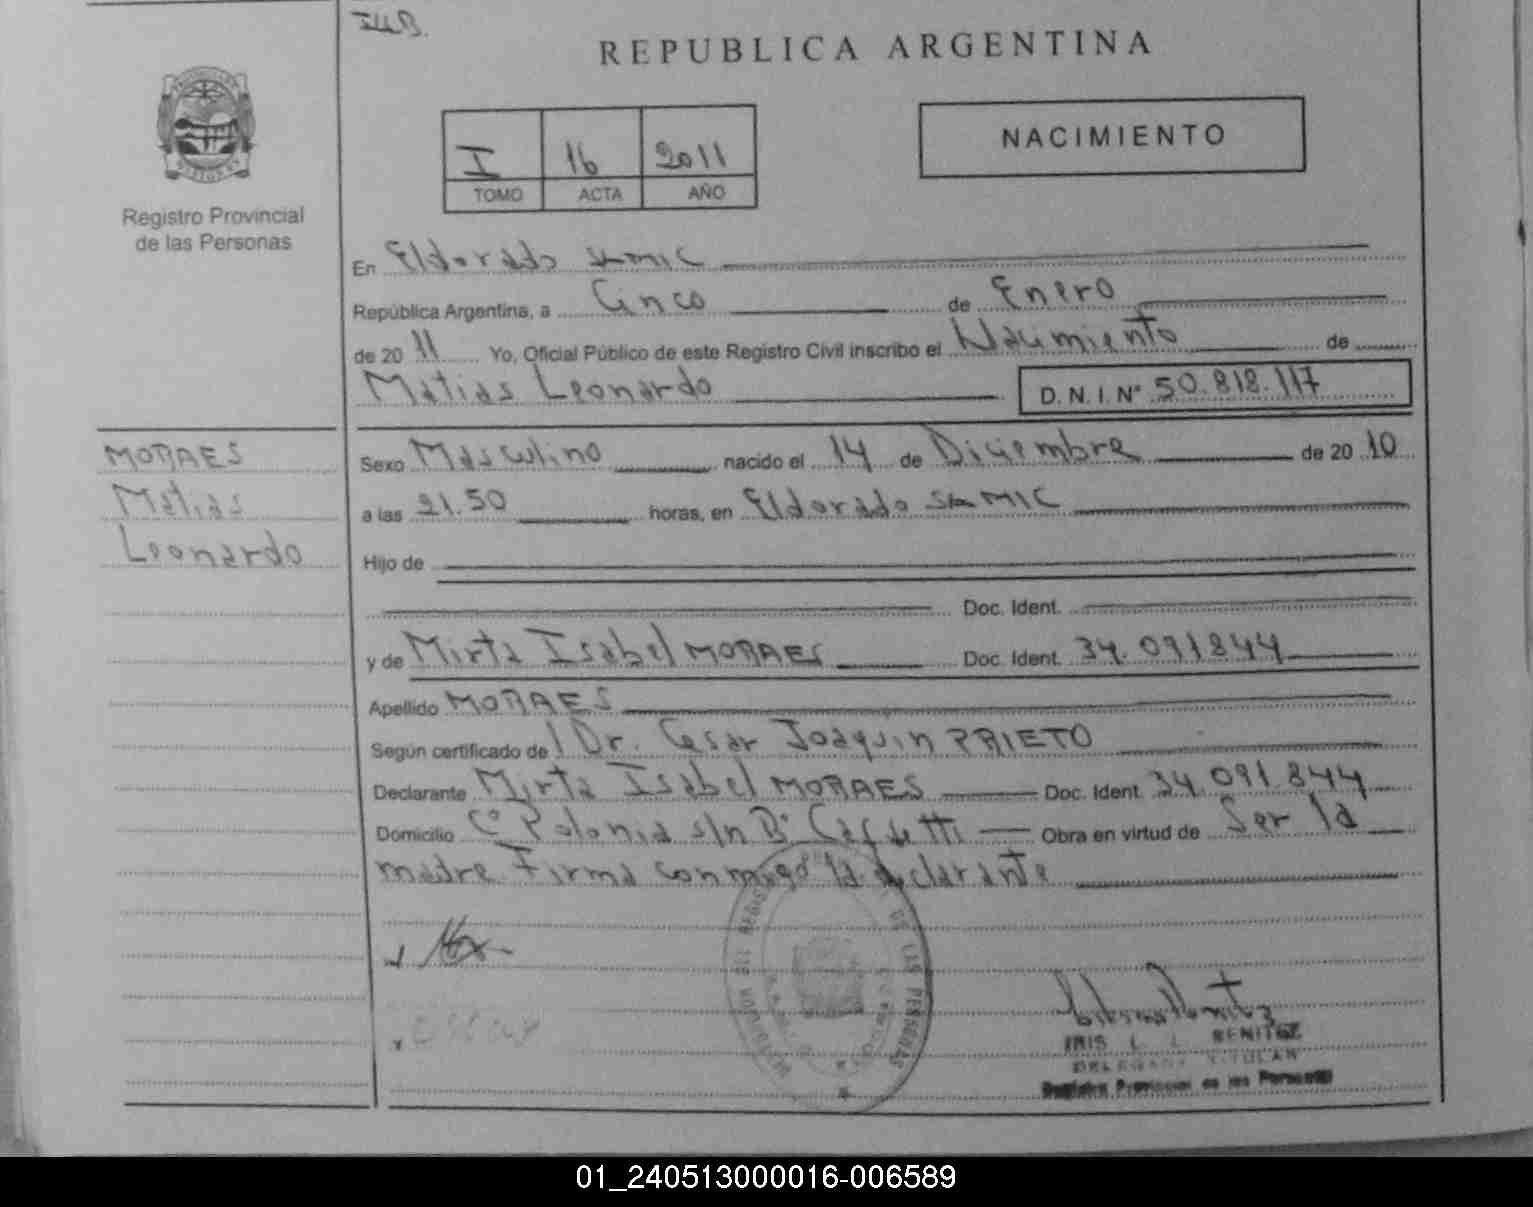 REPUBLICA ARGENTINA
NACIMIENTO
I 16 2011
TOMO ACTA AÑO
Registro Provincial
de las Personas
En Eldorado SAMIC
República Argentina, a Cinco de Enero
de 2011 Yo, Oficial Público de este Registro Civil inscribo el Nacimiento de
Matias Leonardo D.N.I.Nº 50.818.117
MORAES
Matias
Leonardo
Sexo Masculino nacido el 14 de Diciembre de 2010
a las 21.50 horas, en Eldorado SAMIC
Hijo de
Doc. Ident.
y de Mirta Isabel MORAES Doc. Ident. 34.091844
Apellido MORAES
Según certificado de Dr. Cesar Joaquin PRIETO
Declarante Mirta Isabel MORAES Doc. Ident. 34.091.844
Domicilio Cº Polonia s/n Bº Obra en virtud de Ser la
madre Firma conmigo la declarante
DE LAS PERSONAS
IRIS L. BENITEZ
DELEGADA TITULAR
Registro Provincial de las Personas
01_240513000016-006589